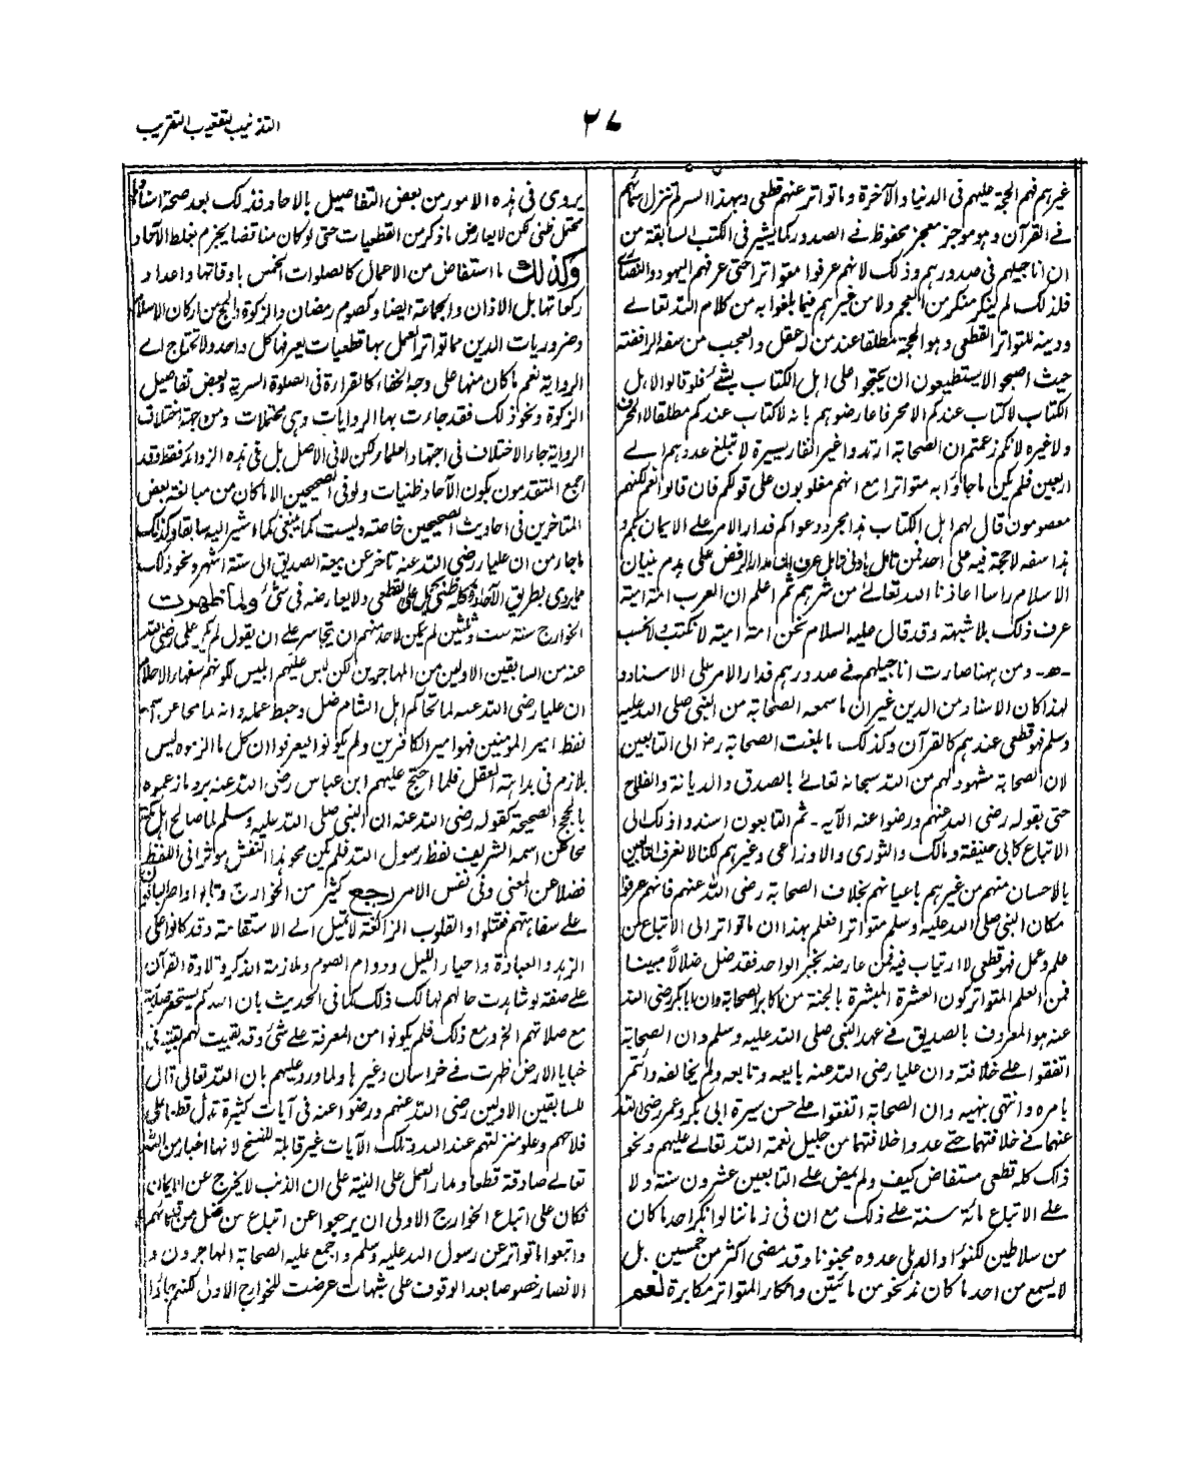 التذنيب لتعقيب التقريب
٢٧
غيرهم فهم الحجة عليهم فى الدنيا والآخرة وما تواتر عنهم قطعى وبهذا السر لم تنزل اسمائهم
فے القرآن وهو موجز معجز محفوظ فے الصدور كما يشير فى الكتب السابقة من
ان اناجيلهم فى صدورهم وذلك لانهم عرفوا متواترا حتى عرفهم اليهود والنصارے
فلذلك لم ينكر منكر من العجم ولا من غيرهم فيما بلغوا به من كلام الله تعالے
ودينه للتواتر القطعى وهو الحجة مطلقا عند من له عقل والعجب من سفه الرافضة
حيث اصبحوا لا يستطيعون ان يحتجوا على اهل الكتاب بشئ فلو قالوا لاهل
الكتاب لا كتاب عندكم الا محرفا عارضوهم بانه لا كتاب عندكم مطلقا لا المحرف
ولا غيره لانكم زعمتم ان الصحابة ارتدوا غير انفار يسيرة لا تبلغ عددهم الے
اربعين فلم يكن ما جاؤا به متواترا مع انهم مغلوبون على قولكم فان قالوا نعم لكنهم
معصومون قال لهم اهل الكتاب هذا مجرد دعواكم فدار الامر على الايمان بكم و
هذا سفه لا حجة فيه على احد فمن تامل بادنى تامل عرف ان مدار الرفض على هدم بنيان
الاسلام راسا اعاذنا الله تعالے من شرهم ثم اعلم ان العرب امة امية
عرف ذلك بلا شبهة وقد قال عليه السلام نحن امة امية لا نكتب ولا نحسب
-ه- ومن ههنا صارت اناجيلهم فے صدورهم فدار الامر على الاسناد و
لهذا كان الاسناد من الدين غير ان ما سمعه الصحابة من النبى صلى الله عليه
وسلم فهو قطعى عندهم كالقرآن وكذلك ما بلغت الصحابة رضا الى التابعين
لان الصحابة مشهود لهم من الله سبحانه تعالے بالصدق والديانة والفلاح
حتى بقوله رضى الله عنهم ورضوا عنه الآيه - ثم التابعون اسندوا ذلك الى
الاتباع كابى حنيفة ومالك والثورى والاوزاعى وغيرهم لكنا لا نعرف التابعين
بالاحسان منهم من غيرهم باعيانهم بخلاف الصحابة رضى الله عنهم فانهم عرفوا
مكان النبى صلى الله عليه وسلم متواترا فعلم بهذا ان ما تواتر الى الاتباع من
علم وعمل فهو قطعى لا ارتياب فيه فمن عارضه بخبر الواحد فقد ضل ضلالاً مبينا
فمن العلم المتواتر كون العشرة المبشرة بالجنة من اكابر الصحابة وان ابا بكر رضى الله
عنه هو المعروف بالصديق فے عهد النبى صلى الله عليه وسلم وان الصحابة
اتفقوا علے خلافته وان عليا رضى الله عنه بايعه وتابعه ولم يخالفه وائتمر
بامره وانتهى بنهيه وان الصحابة اتفقوا علے حسن سيرة ابى بكر وعمر رضى الله
عنهما فے خلافتهما حتے عدوا خلافتهما من جليل نعمة الله تعالے عليهم ونحو
ذلك كله قطعى مستفاض كيف ولم يمض علے التابعين عشرون سنة ولا
علے الاتباع مائة سنة علے ذلك مع ان فى زماننا لو انكر احد ما كان
من سلاطين لكنؤ او الدهلى عدوه مجنونا وقد مضى اكثر من خمسين بل
لا يسمع من احد ما كان نحو من مائتين وانكار المتواتر مكابرة نعم
يروى فى هذه الامور من بعض التفاصيل بالاحاد فذلك بعد صحة اسناده
محتمل ظنى لكن لا يعارض ما ذكر من القطعيات حتى لو كان مناقضا يجزم بغلط الآحاد
وكذلك ما استفاض من الاعمال كالصلوات الخمس باوقاتها واعداد
ركعاتها بل الاذان والجماعة ايضا وكصوم رمضان والزكوة والحج من اركان الاسلام
وضروريات الدين مما تواتر العمل بها قطعيات يعرفها كل واحد ولا تحتاج الے
الرواية نعم ما كان منها على وجه الخفاء كالقراءة فى الصلوة السرية وبعض تفاصيل
الزكوة ونحو ذلك فقد جاءت بها الروايات وهى محتملات ومن جهة اختلاف
الرواية جاء الاختلاف فى اجتهاد العلماء لكن لا فى الاصل بل فى هذه الزوائد فقط وقد
اجمع المتقدمون بكون الآحاد ظنيات ولو فى الصحيحين الا ما كان من مبالغة بعض
المتاخرين فى احاديث الصحيحين خاصة وليست كما ينبغى كما اشير اليه سابقا وكذلك
ما جاء من ان عليا رضى الله عنه تاخر عن بيعة الصديق الى ستة اشهر ونحو ذلك
مما يروى بطريق الآحاد فكله ظنى يحمل على القطعى ولا يعارضه فى شئ ولما ظهرت
الخوارج سنة ست وثلثين لم يكن لاحد منهم ان يتجاسر علے ان يقول لم يكن على رضى الله
عنه من السابقين الاولين من المهاجرين لكن لبس عليهم ابليس لكونهم سفهاء الاحلام
ان عليا رضى الله عنه لما تحاكم اهل الشام ضل وحبط عمله وانه ما محا عن اسمه
لفظ امير المؤمنين فهو امير الكافرين ولم يكونوا ليعرفوا ان كل ما الزموه ليس
بلازم فى بداهة العقل فلما احتج عليهم ابن عباس رضى الله عنه برد ما زعموه
بالحجج الصحيحة كقوله رضى الله عنه ان النبى صلى الله عليه وسلم لما صالح اهل مكة
محا عن اسمه الشريف لفظ رسول الله فلم يكن محو هذا النقش موثرا فى اللفظ
فضلا عن المعنى وفى نفس الامر رجع كثير من الخوارج وتابوا واصر الباقون
علے سفاهتهم فقتلوا والقلوب الزائغة لا تميل الے الاستقامة وقد كانوا على
الزهد والعبادة واحياء الليل ودوام الصوم وملازمة الذكر وتلاوة القرآن
علے صفة لو شاهدت حالهم لهالك ذلك كما فى الحديث بان احدكم يستحقر صلاته
مع صلاتهم الخ ومع ذلك فلم يكونوا من المعرفة علے شئ وقد بقيت لهم بقية فى
خبايا الارض ظهرت فے خراسان وغيرها ولما ورد عليهم بان الله تعالى قال
للسابقين الاولين رضى الله عنهم ورضوا عنه فى آيات كثيرة تدل قطعا على
فلاحهم وعلو منزلتهم عند الله وتلك الآيات غير قابلة للنسخ لانها اخبار من الله
تعالے صادقة قطعا ومدار العمل على النية على ان الذنب لا يخرج عن الايمان
فكان على اتباع الخوارج الاولى ان يرجعوا عن اتباع من ضل من قدمائهم
واتبعوا ما تواتر عن رسول الله عليه وسلم واجمع عليه الصحابة المهاجرون و
الانصار خصوصا بعد الوقوف على شبهات عرضت للخوارج الاولى لكنهم جاؤا